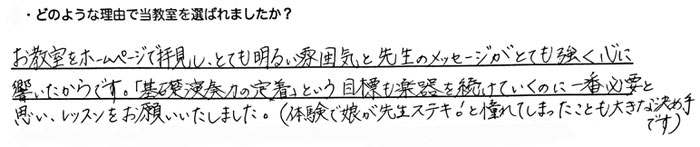 ・どのような理由で当教室を選ばれましたか？
お教室をホームページで拝見し、とても明るい雰囲気と先生のメッセージがとても強く心に
響いたからです。「基礎演奏力の定着」という目標も楽器を続けていくのに一番必要と
思い、レッスンをお願いいたしました。（体験で娘が先生ステキ！と憧れてしまったことも大きな決め手
です）